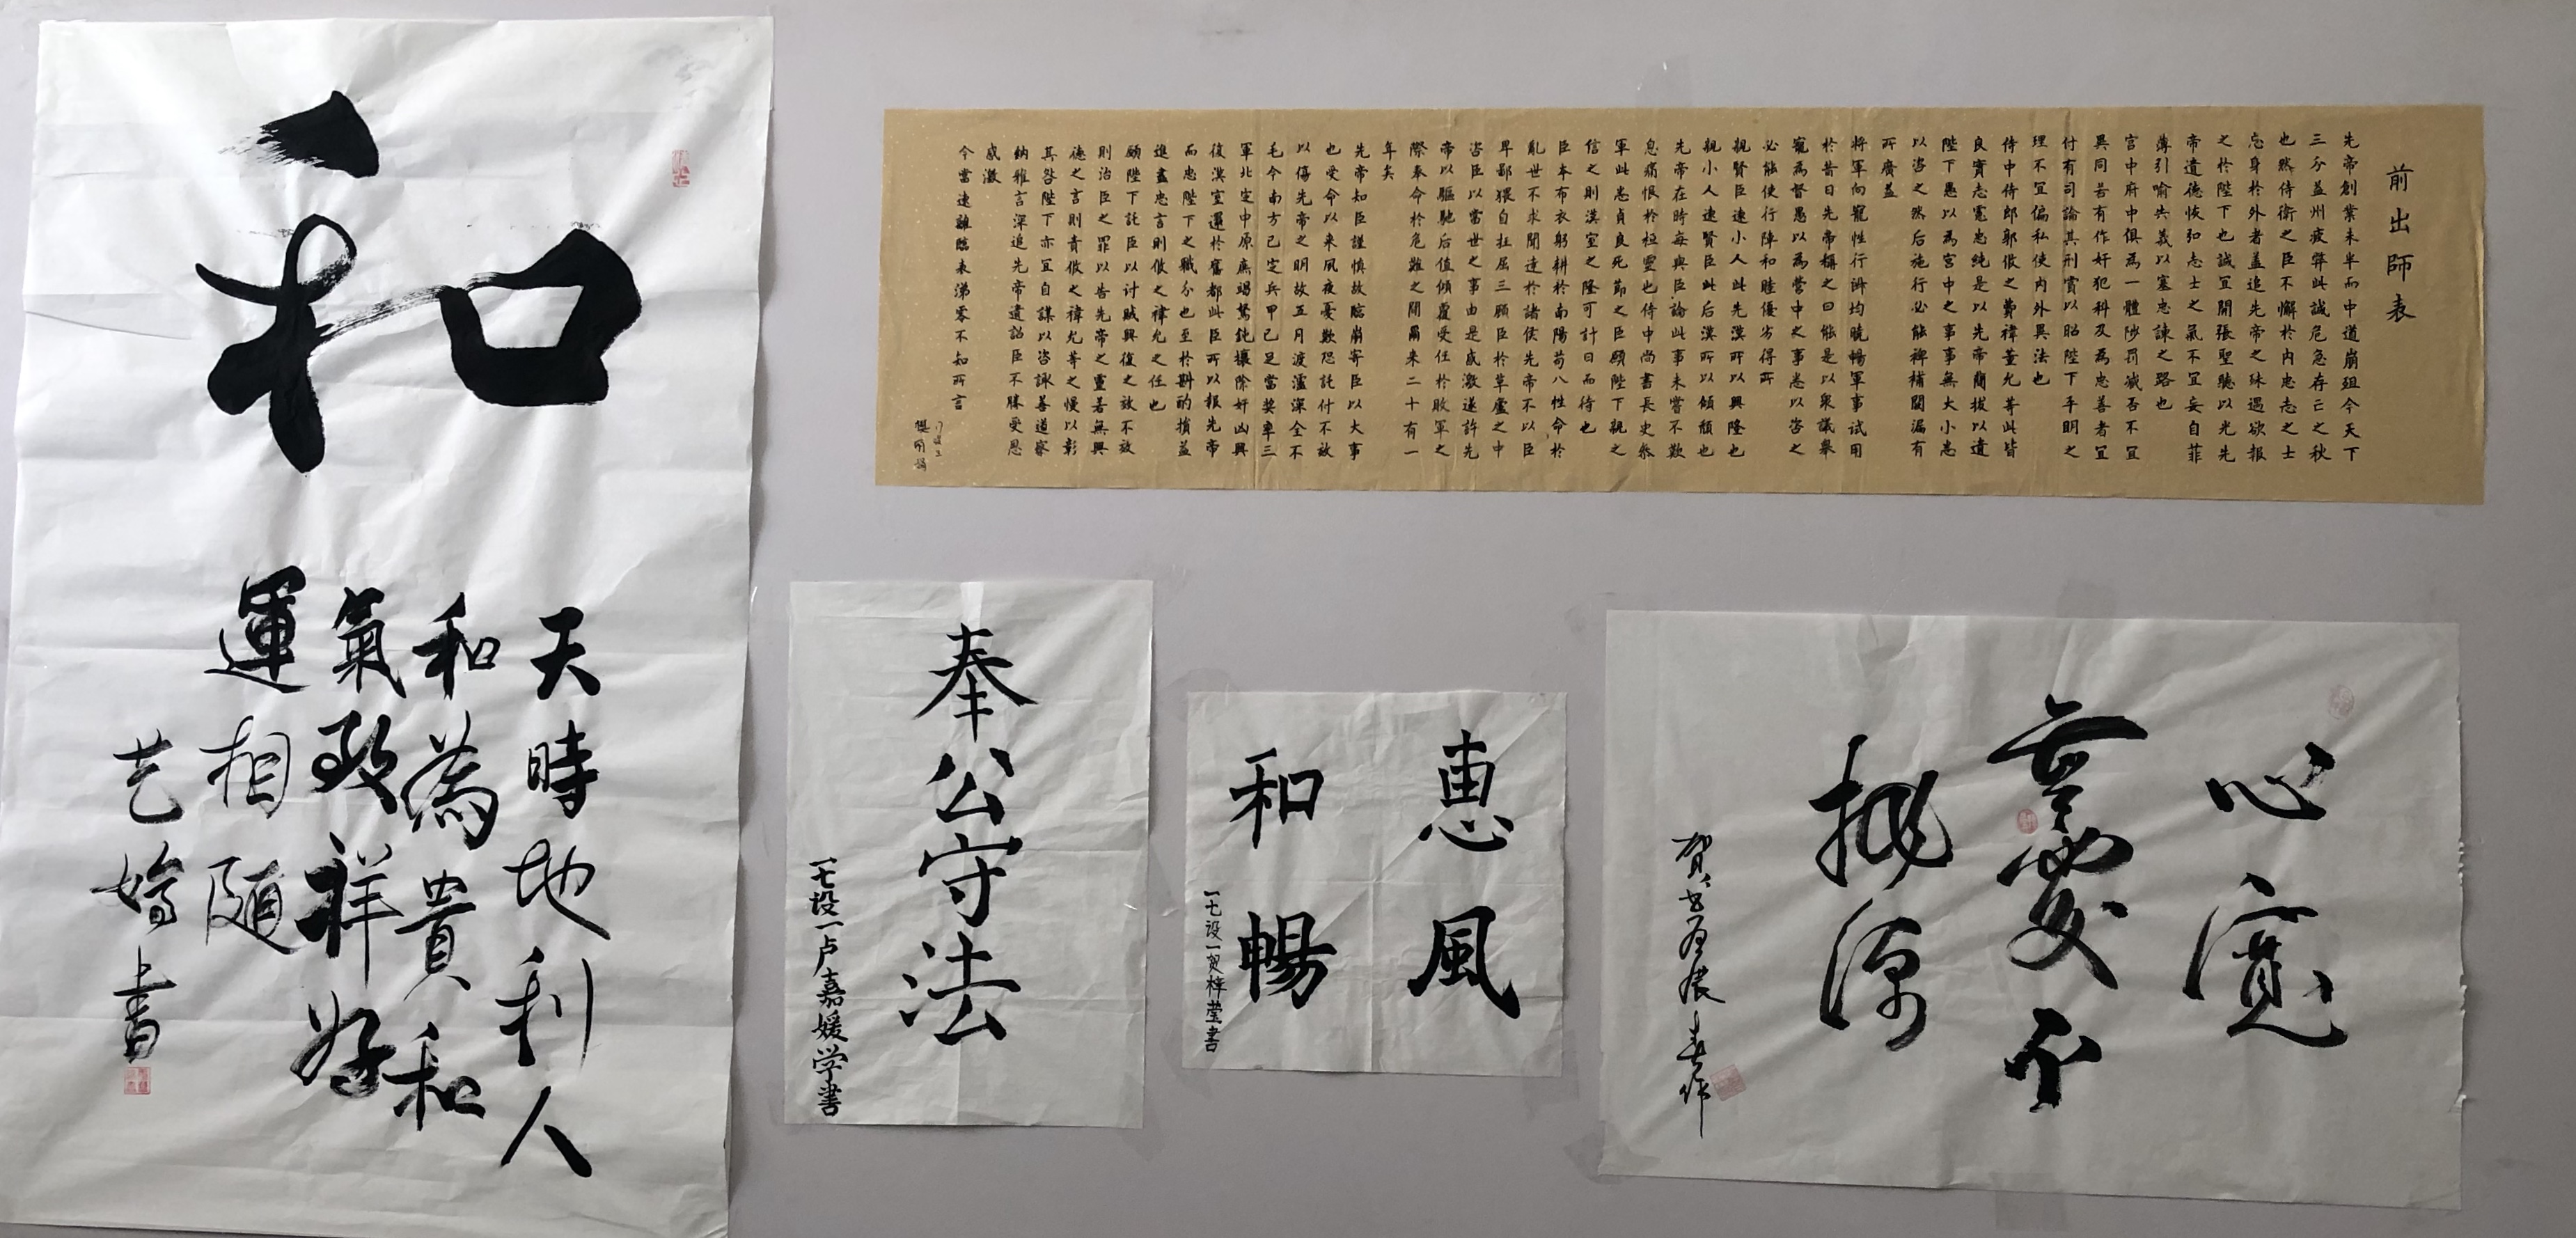 和
天時地利人
和為貴和
氣致祥好
運相随
艺 書
前出師表
先帝創業未半而中道崩殂今天下
三分益州疲弊此誠危急存亡之秋
也然侍衛之臣不懈於内忠志之士
忘身於外者蓋追先帝之殊遇欲報
之於陛下也誠宜開張聖聽以光先
帝遺德恢弘志士之氣不宜妄自菲
薄引喻失義以塞忠諫之路也
宫中府中俱為一體陟罚臧否不宜
異同若有作奸犯科及為忠善者宜
付有司論其刑賞以昭陛下平明之
理不宜偏私使内外異法也
侍中侍郎郭攸之費禕董允等此皆
良實志慮忠純是以先帝簡拔以遺
陛下愚以為宫中之事事無大小悉
以咨之然后施行必能裨補闕漏有
所廣益
将軍向寵性行淑均曉暢軍事试用
於昔日先帝稱之曰能是以衆議舉
寵為督愚以為營中之事悉以咨之
必能使行陣和睦優劣得所
親賢臣遠小人此先漢所以興隆也
親小人遠賢臣此后漢所以傾頹也
先帝在時每與臣論此事未嘗不歎
息痛恨於桓靈也侍中尚書長史參
軍此悉貞良死節之臣願陛下親之
信之則漢室之隆可計日而待也
臣本布衣躬耕於南陽苟全性命於
亂世不求聞達於諸侯先帝不以臣
卑鄙猥自枉屈三顾臣於草廬之中
咨臣以當世之事由是感激遂許先
帝以驅馳后值傾覆受任於敗軍之
際奉命於危難之間爾来二十有一
年矣
先帝知臣謹慎故臨崩寄臣以大事
也受命以来夙夜憂歎恐託付不效
以傷先帝之明故五月渡瀘深入不
毛今南方已定兵甲已足當奖率三
軍北定中原庶竭駑鈍攘除奸凶興
復漢室還於舊都此臣所以報先帝
而忠陛下之職分也至於斟酌損益
進盡忠言則攸之禕允之任也
願陛下託臣以讨賊興復之效不效
則治臣之罪以告先帝之靈若無興
德之言則責攸之禕允等之慢以彰
其咎陛下亦宜自謀以咨諏善道察
納雅言深追先帝遺詔臣不勝受恩
感激
今當遠離臨表涕零不知所言
奉公守法
一七设一卢嘉媛学書
惠風
和暢
一七设一贺梓莹書
心寬
憂不